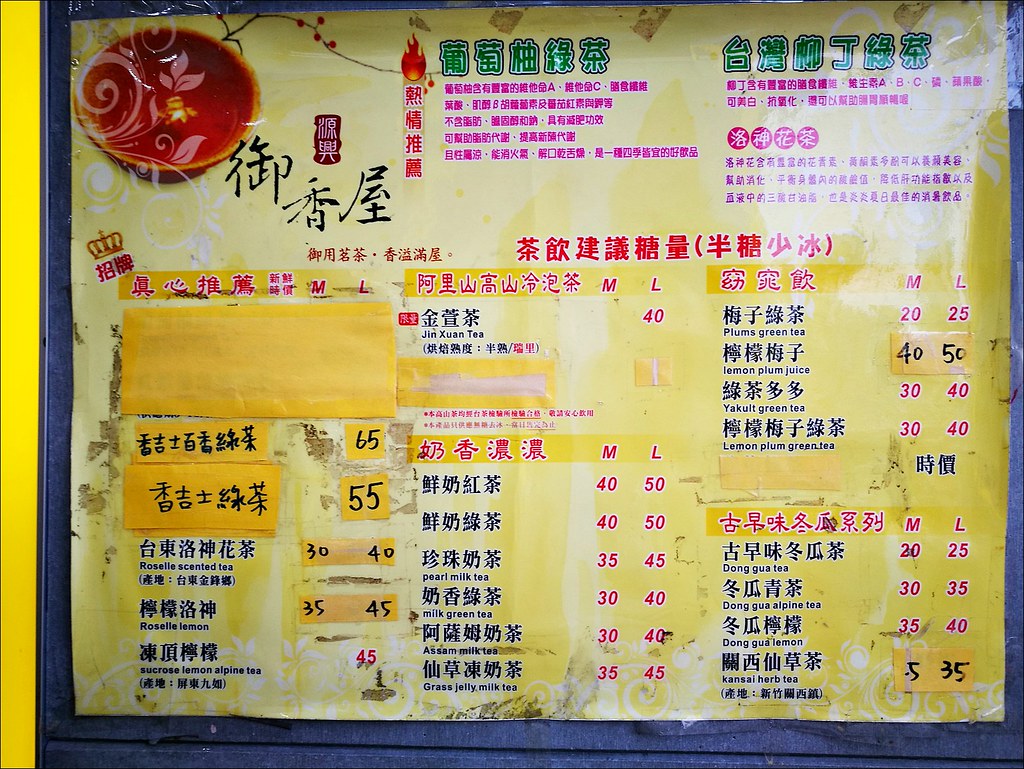 源興
御香屋
御用茗茶，香溢滿屋。
熱情推薦
葡萄柚綠茶
葡萄柚含有豐富的維他命A、維他命C、膳食纖維
葉酸、肌醇β胡蘿蔔素及番茄紅素與鉀等
不含脂肪、膽固醇和鈉，具有減肥功效
可幫助脂肪代謝、提高新陳代謝
且性屬涼，能消火氣、解口乾舌燥，是一種四季皆宜的好飲品
台灣柳丁綠茶
柳丁含有豐富的膳食纖維、維生素A、B、C、磷、蘋果酸，
可美白、抗氧化，還可以幫助腸胃順暢喔
洛神花茶
洛神花含有豐富的花青素、黃酮素多酚可以養顏美容、
幫助消化、平衡身體內的酸鹼值、降低肝功能指數以及
血液中的三酸甘油脂，也是炎炎夏日最佳的消暑飲品。
茶飲建議糖量(半糖少冰)
招牌
真心推薦 新鮮時價 M L
香吉士百香綠茶 65
香吉士綠茶 55
台東洛神花茶 30 40
Roselle scented tea
(產地：台東金鋒鄉)
檸檬洛神 35 45
Roselle lemon
凍頂檸檬 45
sucrose lemon alpine tea
(產地：屏東九如)
阿里山高山冷泡茶 M L
限量 金萱茶 40
Jin Xuan Tea
(烘焙熟度：半熟/瑞里)
*本高山茶均經台茶檢驗所檢驗合格，敬請安心飲用
*本產品只供應無糖去冰，當日售完為止
奶香濃濃 M L
鮮奶紅茶 40 50
鮮奶綠茶 40 50
珍珠奶茶 35 45
pearl milk tea
奶香綠茶 30 40
milk green tea
阿薩姆奶茶 30 40
Assam milk tea
仙草凍奶茶 35 45
Grass jelly milk tea
窈窕飲 M L
梅子綠茶 20 25
Plums green tea
檸檬梅子 40 50
lemon plum juice
綠茶多多 30 40
Yakult green tea
檸檬梅子綠茶 30 40
Lemon plum green tea
時價
古早味冬瓜系列 M L
古早味冬瓜茶 20 25
Dong gua tea
冬瓜青茶 30 35
Dong gua alpine tea
冬瓜檸檬 35 40
Dong gua lemon
關西仙草茶 5 35
kansai herb tea
(產地：新竹關西鎮)